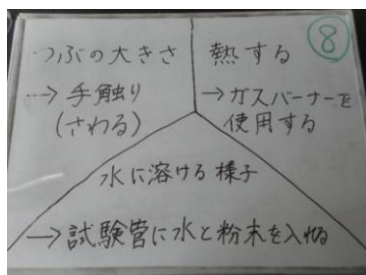 つぶの大きさ
⇢ 手触り
(さわる)
熱する
→ ガスバーナーを
使用する
⑧
水に溶ける様子
→ 試験管に水と粉末を入れる